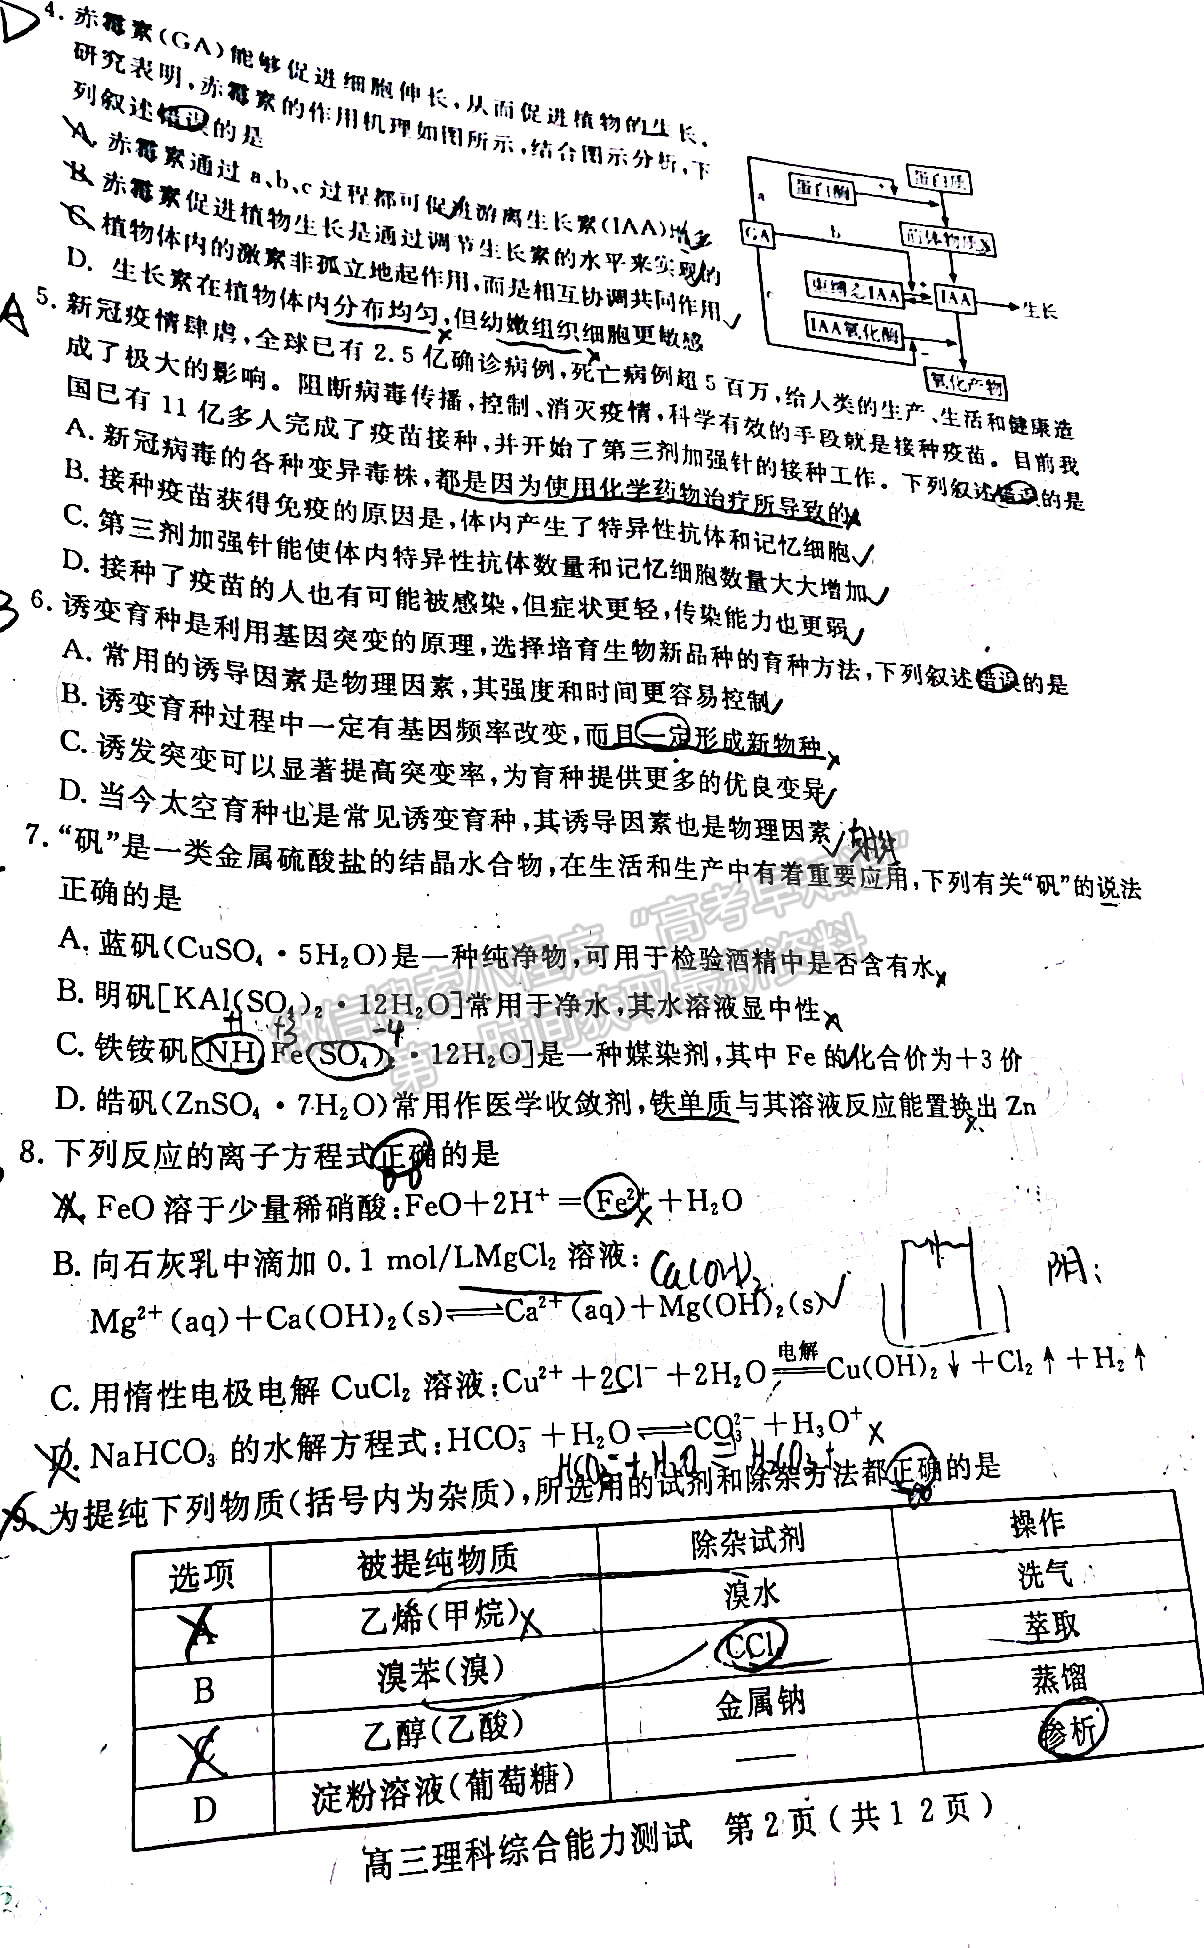 4. 赤霉素(GA)能够促进细胞伸长,从而促进植物的生长。
研究表明,赤霉素的作用机理如图所示,结合图示分析,下
列叙述错误的是
A. 赤霉素通过a、b、c过程都可促进游离生长素(IAA)增多
B. 赤霉素促进植物生长是通过调节生长素的水平来实现的
C. 植物体内的激素非孤立地起作用,而是相互协调共同作用
D. 生长素在植物体内分布均匀,但幼嫩组织细胞更敏感
蛋白酶
蛋白质
a
GA
b
前体物质X
c
束缚态IAA
IAA
生长
IAA氧化酶
氧化产物
5. 新冠疫情肆虐,全球已有2.5亿确诊病例,死亡病例超5百万,给人类的生产、生活和健康造
成了极大的影响。阻断病毒传播,控制、消灭疫情,科学有效的手段就是接种疫苗。目前我
国已有11亿多人完成了疫苗接种,并开始了第三剂加强针的接种工作。下列叙述错误的是
A. 新冠病毒的各种变异毒株,都是因为使用化学药物治疗所导致的
B. 接种疫苗获得免疫的原因是,体内产生了特异性抗体和记忆细胞
C. 第三剂加强针能使体内特异性抗体数量和记忆细胞数量大大增加
D. 接种了疫苗的人也有可能被感染,但症状更轻,传染能力也更弱
6. 诱变育种是利用基因突变的原理,选择培育生物新品种的育种方法,下列叙述错误的是
A. 常用的诱导因素是物理因素,其强度和时间更容易控制
B. 诱变育种过程中一定有基因频率改变,而且一定形成新物种
C. 诱发突变可以显著提高突变率,为育种提供更多的优良变异
D. 当今太空育种也是常见诱变育种,其诱导因素也是物理因素
7. “矾”是一类金属硫酸盐的结晶水合物,在生活和生产中有着重要应用,下列有关“矾”的说法
正确的是
A. 蓝矾(CuSO₄·5H₂O)是一种纯净物,可用于检验酒精中是否含有水
B. 明矾[KAl(SO₄)₂·12H₂O]常用于净水,其水溶液显中性
+1 +3 -4
C. 铁铵矾[NH₄Fe(SO₄)₂·12H₂O]是一种媒染剂,其中Fe的化合价为+3价
D. 皓矾(ZnSO₄·7H₂O)常用作医学收敛剂,铁单质与其溶液反应能置换出Zn
8. 下列反应的离子方程式正确的是
A. FeO溶于少量稀硝酸:FeO+2H⁺=Fe²⁺+H₂O
B. 向石灰乳中滴加0.1 mol/LMgCl₂溶液: Ca(OH)₂
Mg²⁺(aq)+Ca(OH)₂(s)⇌Ca²⁺(aq)+Mg(OH)₂(s)
阴:
C. 用惰性电极电解CuCl₂溶液:Cu²⁺+2Cl⁻+2H₂O 电解 Cu(OH)₂↓+Cl₂↑+H₂↑
D. NaHCO₃的水解方程式:HCO₃⁻+H₂O⇌CO₃²⁻+H₃O⁺
HCO₃⁻+H₂O⇌H₂CO₃+
9. 为提纯下列物质(括号内为杂质),所选用的试剂和除杂方法都正确的是
选项 被提纯物质 除杂试剂 操作
A 乙烯(甲烷) 溴水 洗气
B 溴苯(溴) CCl₄ 萃取
C 乙醇(乙酸) 金属钠 蒸馏
D 淀粉溶液(葡萄糖) — 渗析
高三理科综合能力测试 第2页(共12页)
微信搜索小程序“高考早知道”
第一时间获取最新资料